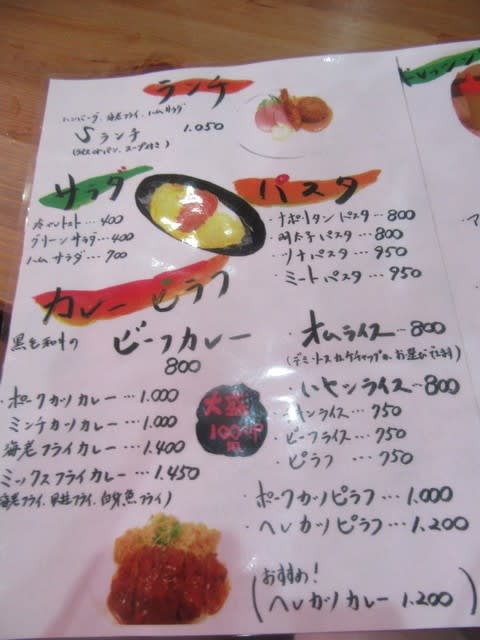 ランチ
ハンバーグ、海老フライ、ハムサラダ
Sランチ 1.050
(ライスorパン、スープ付き)
サラダ
トマト…400
グリーンサラダ…400
ハムサラダ…700
パスタ
・ナポリタンパスタ…800
・明太子パスタ…800
・ツナパスタ…950
・ミートパスタ…950
カレー ピラフ
黒毛和牛の ビーフカレー
800
・ポークカツカレー…1.000
ミンチカツカレー…1.000
海老フライカレー…1.400
ミックスフライカレー…1.450
海老フライ、貝柱フライ、白身魚フライ)
大盛
100円
・オムライス…800
(デミソースorケチャップ お選び下さい)
・ハヤシライス…800
チキンライス…750
・ビーフライス…750
・ピラフ…750
・ポークカツピラフ…1.000
・ヘレカツピラフ…1.200
おすすめ!
(ヘレカツカレー 1.200)
ドレッシング